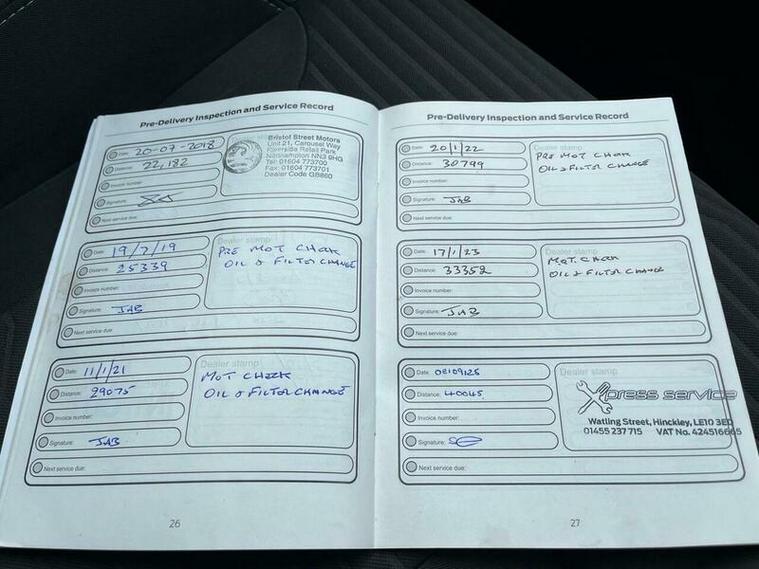 Pre-Delivery Inspection and Service Record
Date: 20-07-2018
Distance: 22,182
Invoice number:
Signature:
Next service due:
Bristol Street Motors
Unit 21, Carousel Way
Riverside Retail Park
Northampton NN3 9HG
Tel: 01604 773700
Fax: 01604 773701
Dealer Code GB860
Date: 19/7/19
Distance: 25339
Invoice number:
Signature: JAB
Next service due:
Dealer stamp
PRE MOT CHECK
OIL & FILTER CHANGE
Date: 11/1/21
Distance: 29075
Invoice number:
Signature: JAB
Next service due:
Dealer stamp
MOT CHECK
OIL & FILTER CHANGE
26
Pre-Delivery Inspection and Service Record
Date: 20/1/22
Distance: 30799
Invoice number:
Signature: JAB
Next service due:
Dealer stamp
PRE MOT CHECK
OIL & FILTER CHANGE
Date: 17/1/23
Distance: 33352
Invoice number:
Signature: JAB
Next service due:
Dealer stamp
MOT CHECK
OIL & FILTER CHANGE
Date: 08109125
Distance: 40045
Invoice number:
Signature:
Next service due:
Dealer stamp
Xpress service
Watling Street, Hinckley, LE10 3ED
01455 237 715 VAT No. 424516665
27